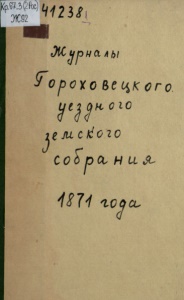 Кр 87.3(2Рос)
Ж92
41238
Журналы
Гороховецкого
уездного
земского
собрания
1871 года